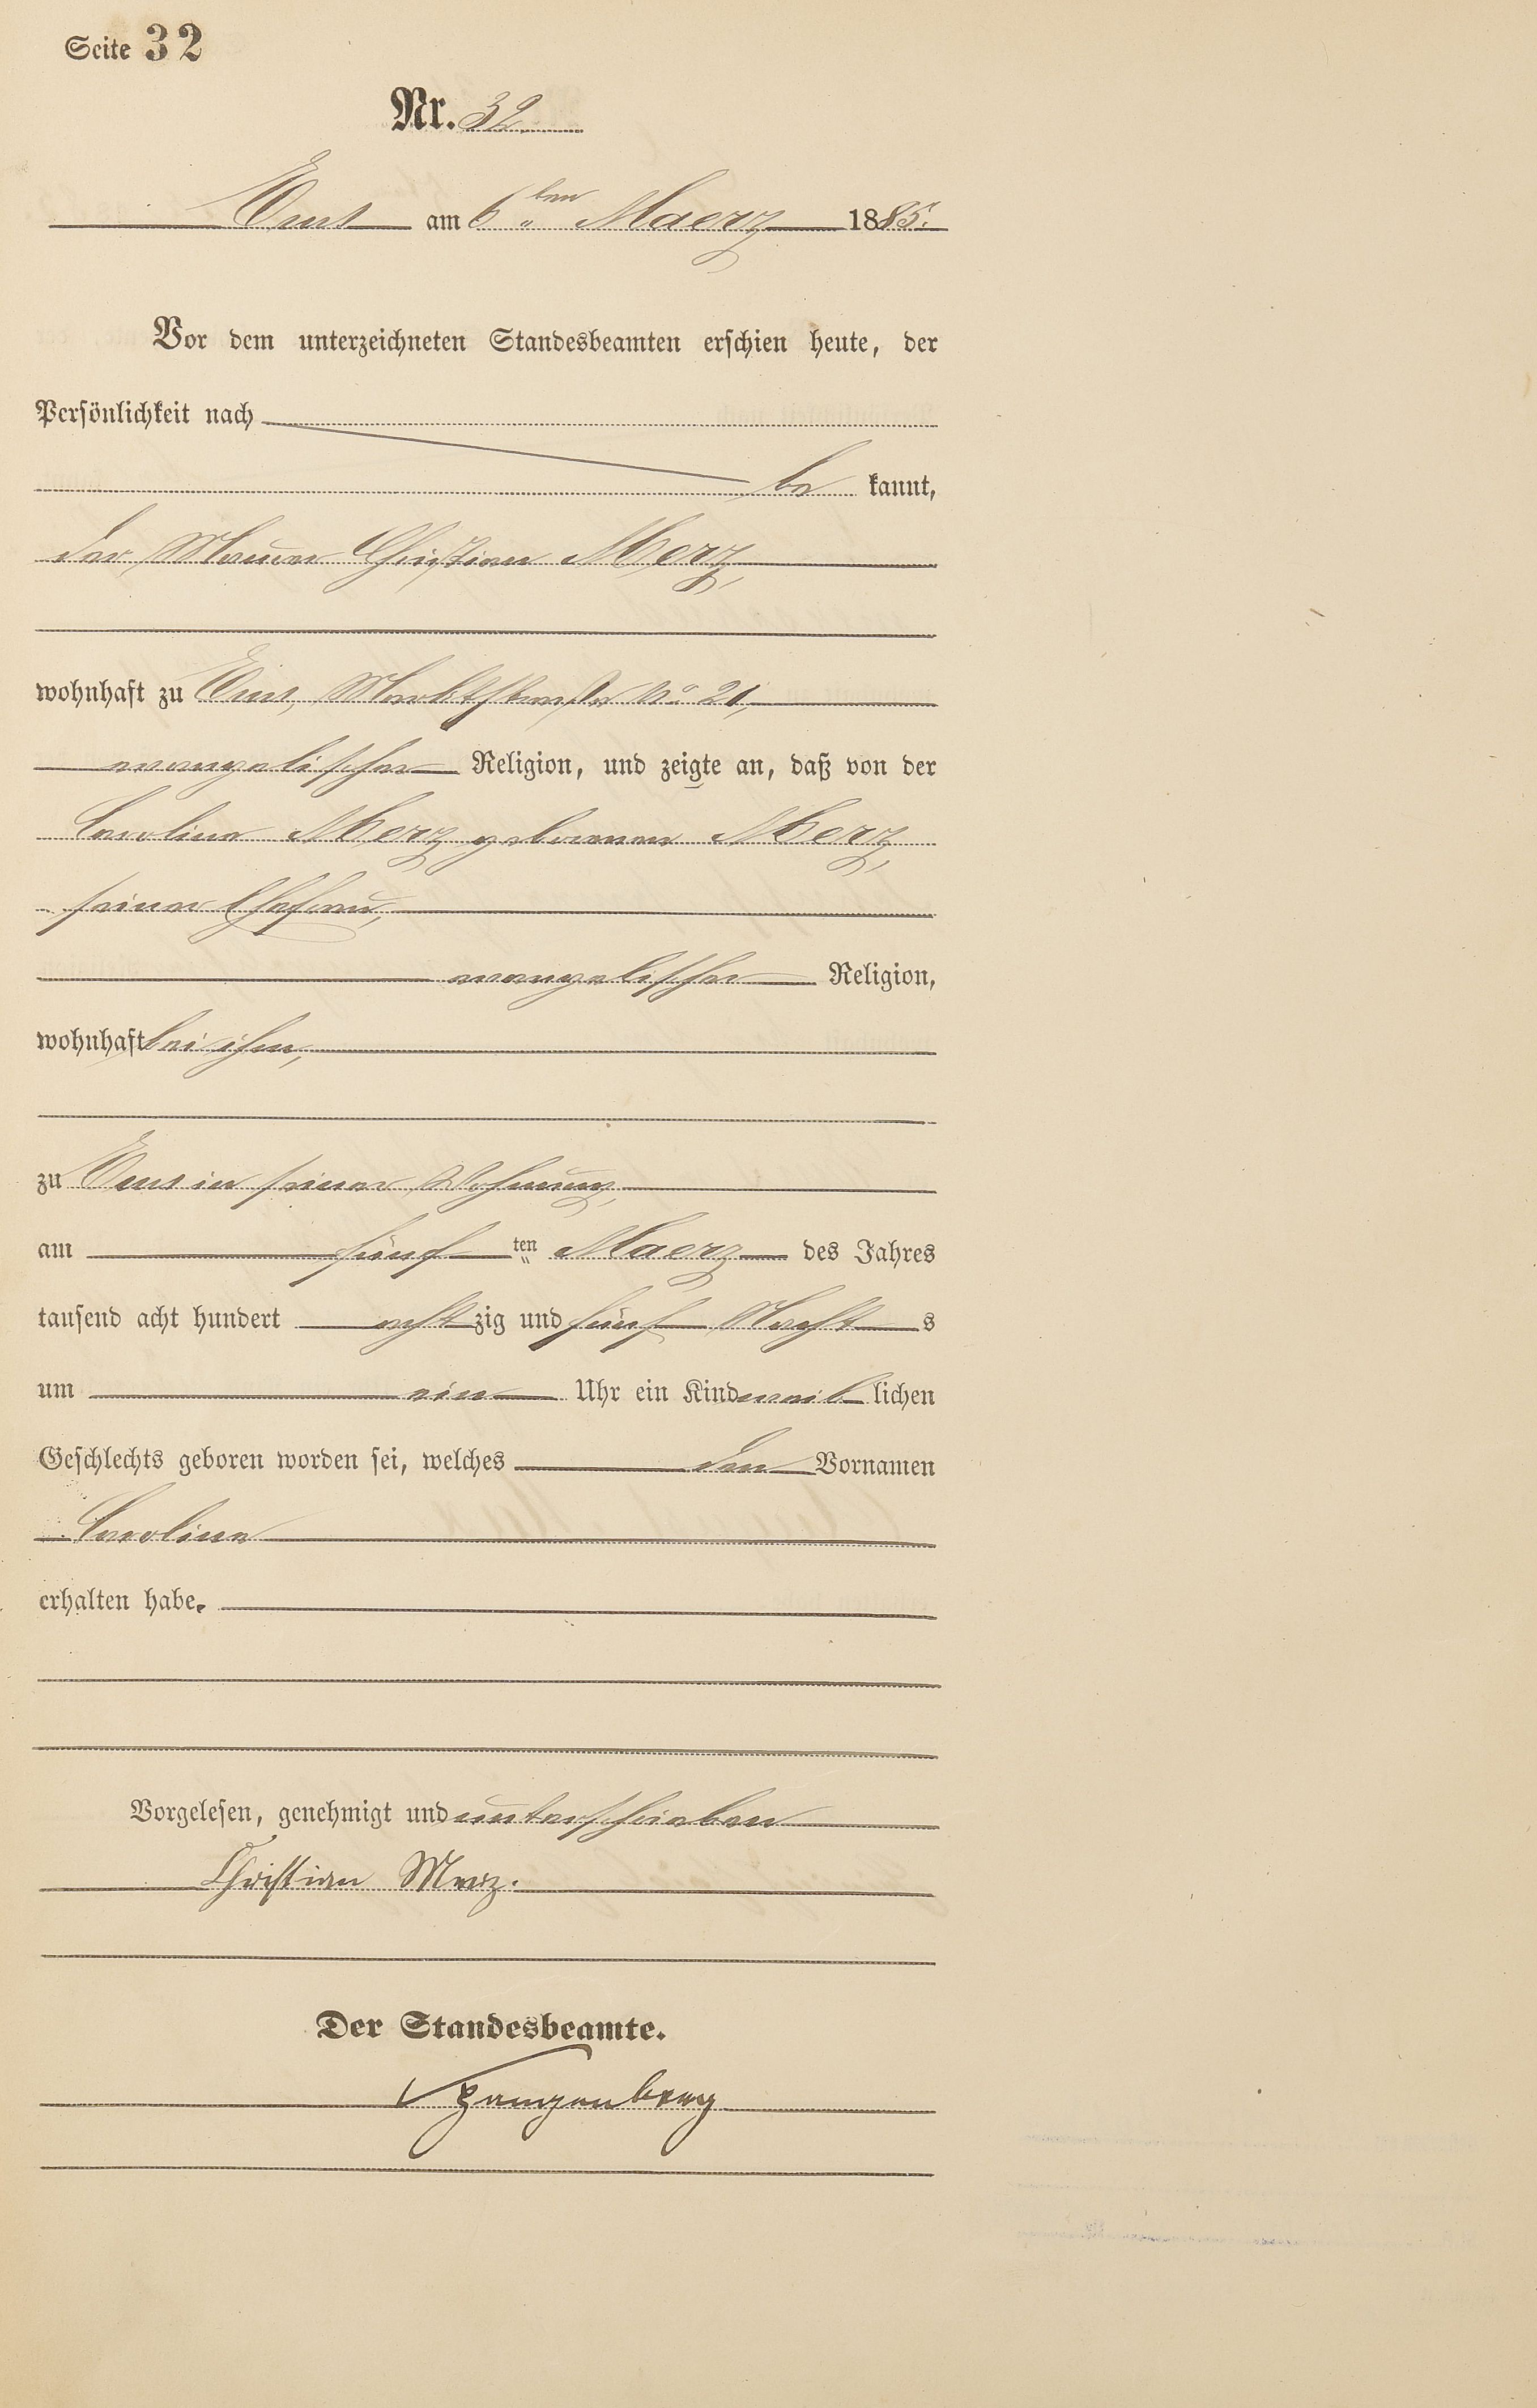 Seite 32
Nr. 32
Ems am 6ten Maerz 1885.
Vor dem unterzeichneten Standesbeamten erschien heute, der
Persönlichkeit nach
be kannt,
der Maurer Christian Merz,
wohnhaft zu Ems, Marktstraße No 21,
evangelischer Religion, und zeigte an, daß von der
Caroline Merz geborenen Merz,
seiner Ehefrau,
evangelischer Religion,
wohnhaft bei ihm,
zu Ems in seiner Wohnung,
am fünf ten Maerz des Jahres
tausend acht hundert acht zig und fünf Nacht s
um ein Uhr ein Kind weib lichen
Geschlechts geboren worden sei, welches den Vornamen
Caroline
erhalten habe.
Vorgelesen, genehmigt und unterschrieben
Christian Merz.
Der Standesbeamte.
Spangenberg